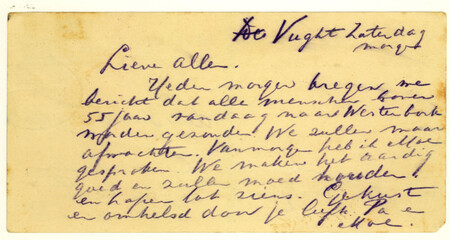 Vught Zaterdag
morgen
Lieve Allen.
Heden morgen kregen we
bericht dat alle menschen boven
55 jaar vandaag naar Westerbork
worden gezonden. We zullen maar
afwachten. Vanmorgen heb ik Moe
gesproken. We maken het aardig
goed en zullen moed houden!
en hopen tot ziens. Gekust
en omhelsd door je liefh. Pa en
Moe.